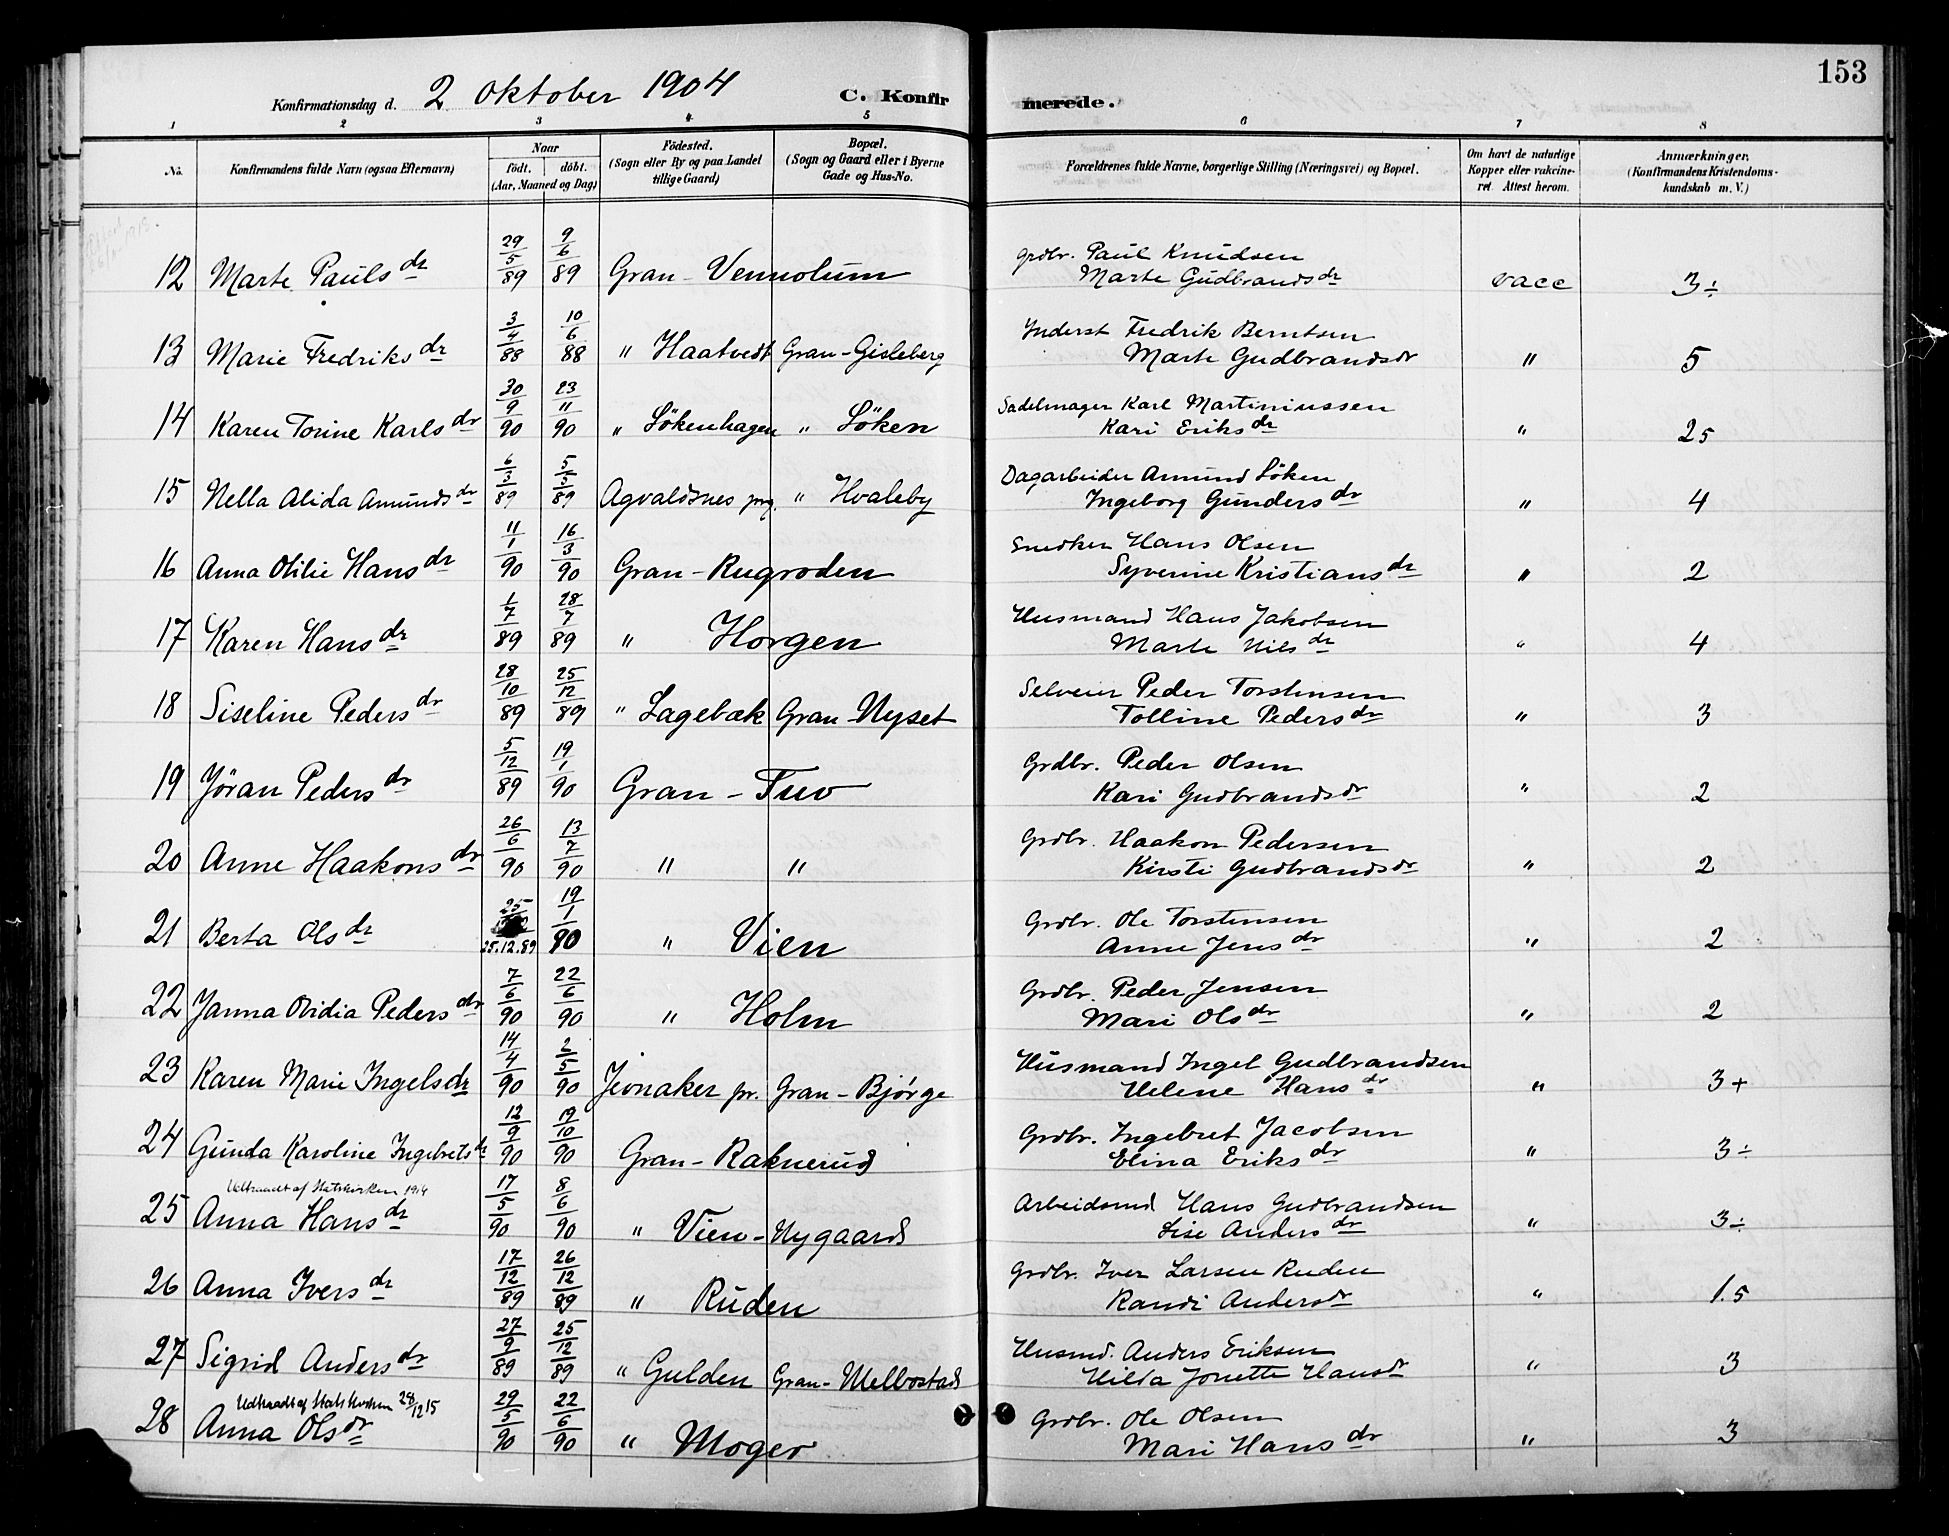 153
Konfirmationsdag d. 2 Oktober 1904 C. Konfirmerede.
1 2 3 4 5 6 7 8
No. Konfirmandens fulde Navn (ogsaa Efternavn) Naar født. døbt. (Aar, Maaned og Dag) Fødested. (Sogn eller By og paa Landet tillige Gaard) Bopæl. (Sogn og Gaard eller i Byerne Gade og Hus-No. Forældrenes fulde Navne, borgerlige Stilling (Næringsvei) og Bopæl. Om havt de naturlige Kopper eller vakcineret. Attest herom. Anmærkninger. (Konfirmandens Kristendomskundskab m. V.)
12 Marte Pauls dr 29/5 89 9/6 89 Gran - Vennolum Grdbr. Paul Knudsen
Marte Gudbrands dr vacc 3÷
13 Marie Fredriks dr 3/4 88 10/6 88 " Haatvedt Gran - Gisleberg Inderst Fredrik Berntsen
Marte Gudbrandsdr " 5
14 Karen Torine Karls dr 30/9 90 23/11 90 " Søkenhagen " Søken Sadelmager Karl Martiniussen
Kari Eriks dr " 25
15 Nella Alida Amunds dr 6/3 89 5/5 89 Agvaldsnes prg. " Hvaleby Dagarbeider Amund Søken
Ingeborg Gunders dr " 4
16 Anna Otilie Hans dr 11/1 90 16/3 90 Gran - Rugroden Snedker Hans Olsen
Syverine Kristians dr " 2
17 Karen Hans dr 1/7 89 28/7 89 " Horgen Husmand Hans Jakobsen
Marte Nils dr " 4
18 Siseline Peders dr 28/10 89 25/12 89 " Lagebæk Gran - Nyset Selveier Peder Torstensen
Tolline Peders dr " 3
19 Jøran Peders dr 5/12 89 19/1 90 Gran - Tuv Grdbr. Peder Olsen
Kari Gudbrandsdr " 2
20 Anne Haakons dr 26/6 90 13/7 90 " " Grdbr. Haakon Pedersen
Kirsti Gudbrandsdr " 2
21 Berta Ols dr 25 25.12.89 19/1 90 " Vien Grdbr. Ole Torstensen
Anne Jens dr " 2
22 Janna Ovidia Peders dr 7/6 90 22/6 90 " Holm Grdbr. Peder Jensen
Mari Ols dr " 2
23 Karen Marie Ingelsdr 14/4 90 2/5 90 Jevnaker pr. Gran - Bjørge Husmand Ingel Gudbrandsen
Helene Hans dr " 3+
24 Gunda Karoline Ingebrets dr 12/9 90 19/10 90 Gran - Raknerud Grdbr. Ingebret Jacobsen
Elina Eriks dr " 3÷
Udtraadt af Statskirken 1914
25 Anna Hans dr 17/5 90 8/6 90 " Vien - Nygaard Arbeidsmd Hans Gudbrandsen
Lise Anders dr " 3÷
26 Anna Ivers dr 17/12 89 26/12 89 " Ruden Grdbr. Iver Larsen Ruden
Randi Andersdr " 1.5
27 Sigrid Anders dr 27/9 89 25/12 89 " Gulden Gran - Melbostad Husmd. Anders Eriksen
Hilda Jonette Hansdr " 3
Udtraadt af Statskirken 28/12 15
28 Anna Ols dr 29/5 90 22/6 90 " Moger Grdbr. Ole Olsen
Mari Hans dr " 3